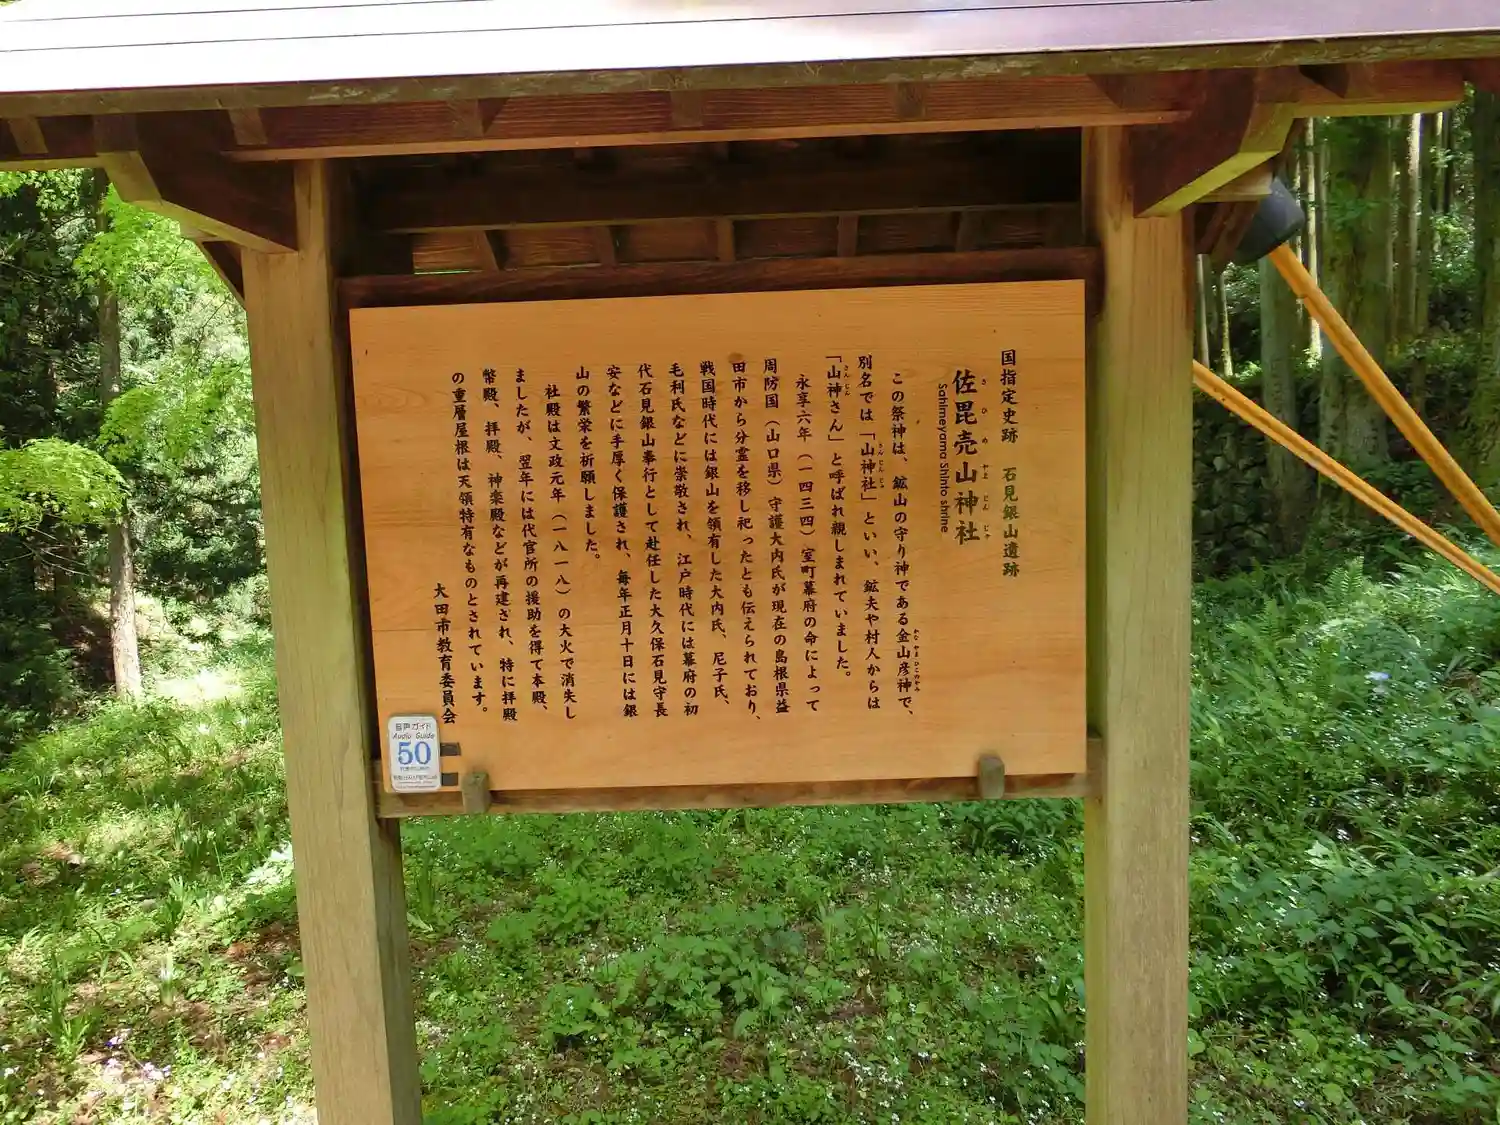 国指定史跡 石見銀山遺跡
佐毘売山神社
さひめやまじんじゃ
Sahimeyama Shinto shrine
この祭神は、鉱山の守り神である金山彦神で、
かなやまひこのかみ
別名では「山神社」といい、鉱夫や村人からは
さんじんじゃ
「山神さん」と呼ばれ親しまれていました。
さんじん
永享六年(一四三四)室町幕府の命によって
周防国(山口県)守護大内氏が現在の島根県益
田市から分霊を移し祀ったとも伝えられており、
戦国時代には銀山を領有した大内氏、尼子氏、
毛利氏などに崇敬され、江戸時代には幕府の初
代石見銀山奉行として赴任した大久保石見守長
安などに手厚く保護され、毎年正月十日には銀
山の繁栄を祈願しました。
社殿は文政元年(一八一八)の大火で消失し
ましたが、翌年には代官所の援助を得て本殿、
幣殿、拝殿、神楽殿などが再建され、特に拝殿
の重層屋根は天領特有なものとされています。
大田市教育委員会
音声ガイド
Audio Guide
50